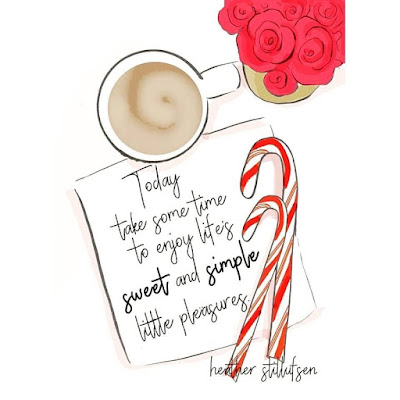 Today
take some time
to enjoy life's
sweet and simple
little pleasures.
heather stillufsen